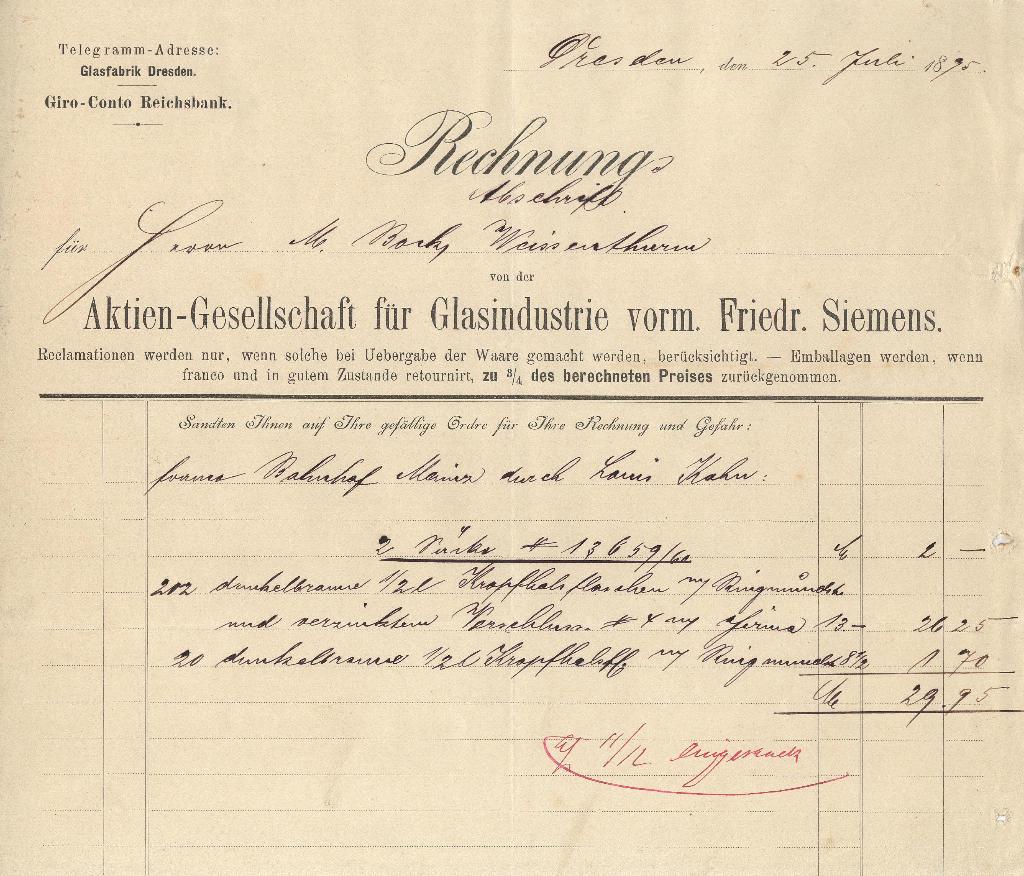 Telegramm-Adresse:
Glasfabrik Dresden.
Giro-Conto Reichsbank.
Dresden, den 25. Juli 1895.
Rechnung
Abschrift
für Herrn M. Bock, Weissenthurm
von der
Aktien-Gesellschaft für Glasindustrie vorm. Friedr. Siemens.
Reclamationen werden nur, wenn solche bei Uebergabe der Waare gemacht werden, berücksichtigt. — Emballagen werden, wenn
franco und in gutem Zustande retournirt, zu 3/4 des berechneten Preises zurückgenommen.
Sandten Ihnen auf Ihre gefällige Ordre für Ihre Rechnung und Gefahr:
franco Bahnhof Mainz durch Louis Kahn:
2 Säcke # 13659/60 2 —
202 dunkelbraune 1/2 l Kropfhalsflaschen m/ Ringmündg
und verzinktem Verschluss # 4 m/ Firma 13— 26 25
20 dunkelbraune 1/2 l Kropfhalsfl. m/ Ringmündg 8 1/2 1 70
M 29.95
11/12